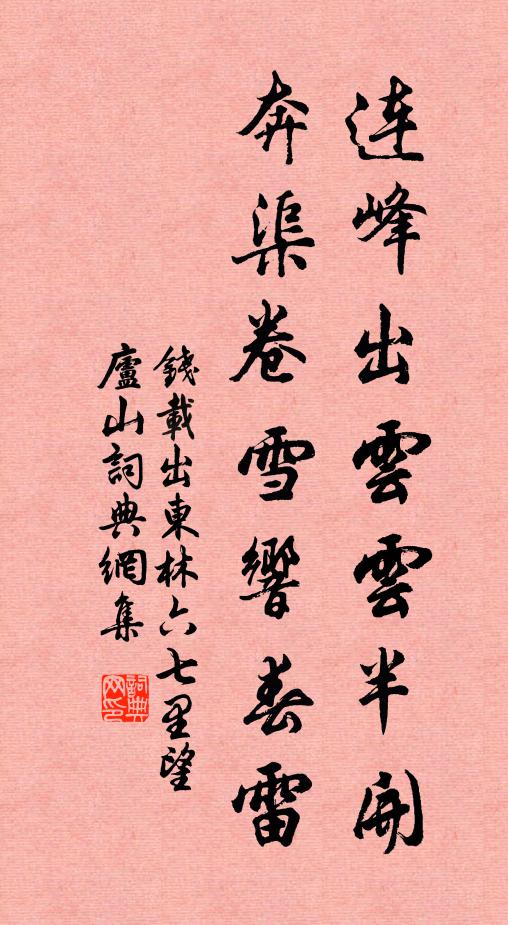 連峰出雲雲半開
奔渠卷雪響春雷
錢載出東林六七里望
廬山詞典網集
詞典
网印